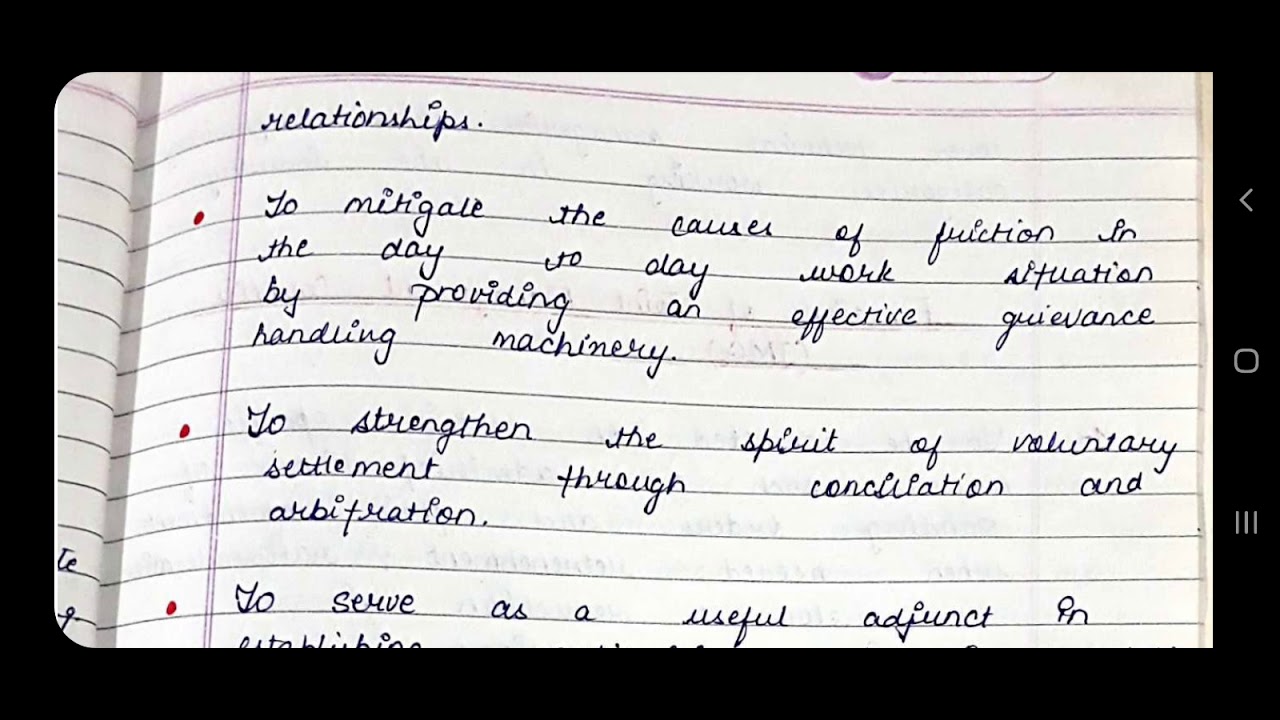 relationships.
To mitigate the causes of friction in
the day to day work situation
by providing an effective grievance
handling machinery.
To strengthen the spirit of voluntary
settlement through conciliation and
arbitration.
te
To serve as a useful adjunct in
establishing